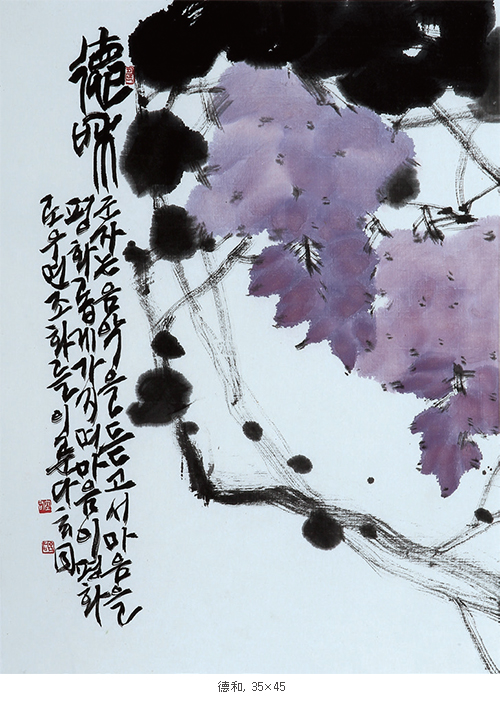 德和
군자는 음악을 듣고서 마음을
평화롭게 가지며 마음이 평화
로우면 조화를 이룬다 玄同
德和, 35×45